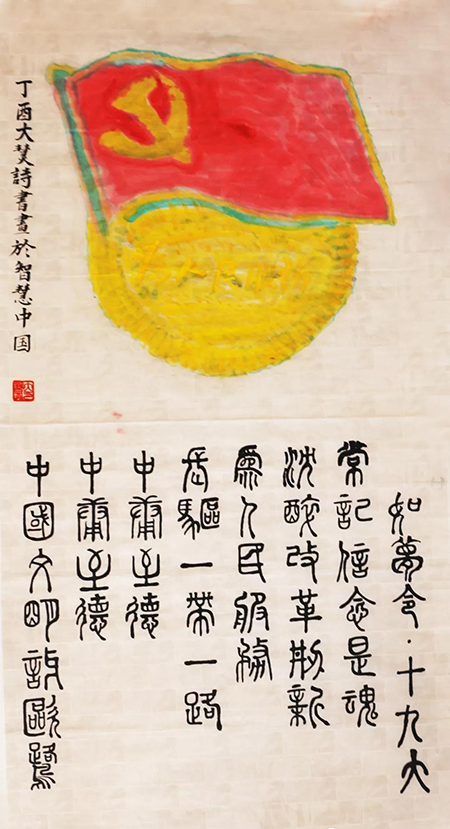 如夢令·十九大
常記信念是魂
沈醉改革刱新
爲人民服務
長驅一帶一路
中庸至德
中庸至德
中國文明鷗鷺
丁酉大詩書畫於智慧中国